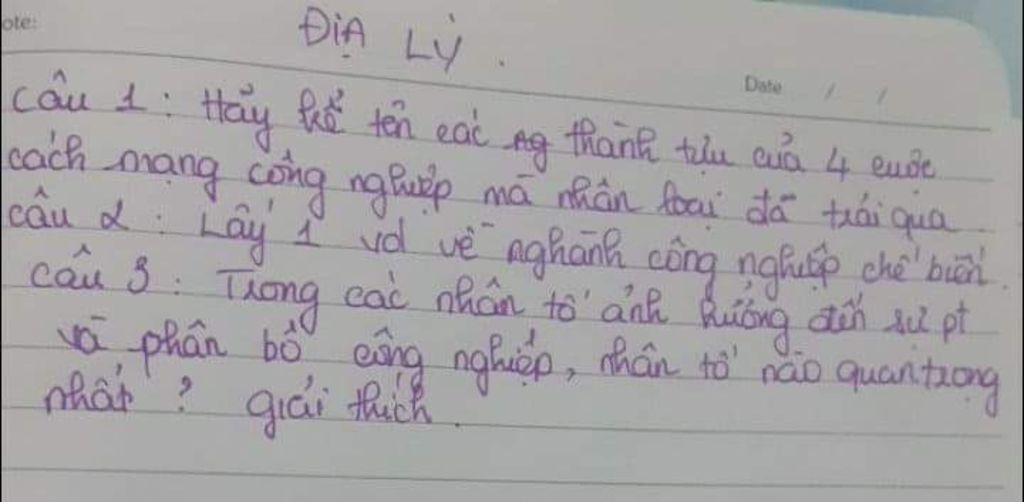 ote:
ĐỊA LÝ.
Date / /
Câu 1: Hãy kể tên các ng thành tựu của 4 cuộc
cách mạng công nghiệp mà nhân loại đã trải qua
câu 2: Lấy 1 vd về nghành công nghiệp chế biến.
Câu 3: Trong các nhân tố ảnh hưởng đến sự pt
và phân bố công nghiệp, nhân tố nào quan trọng
nhất? giải thích.